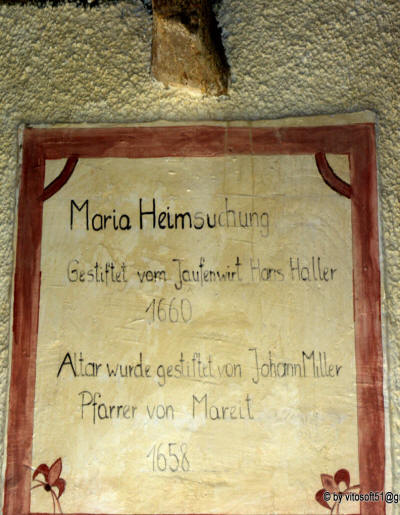 Maria Heimsuchung
Gestiftet vom Jaufenwirt Hans Haller
1660
Altar wurde gestiftet von Johann Miller
Pfarrer von Mareit
1658
© by vitosoft51@g